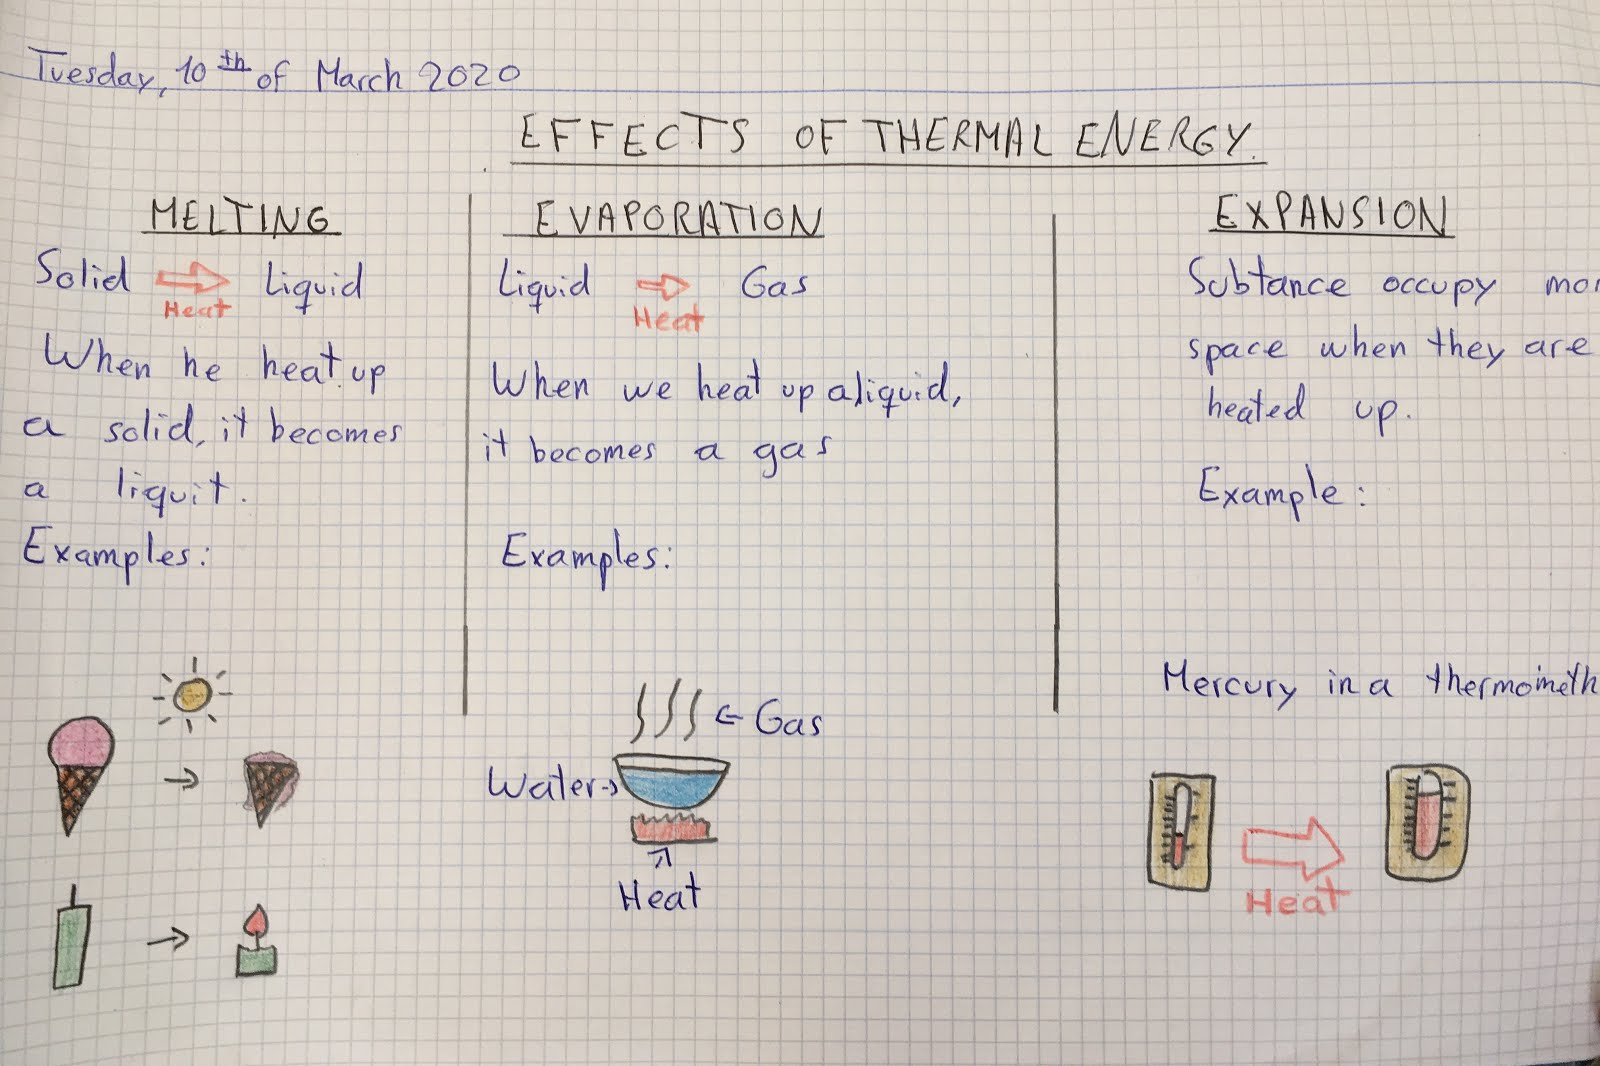 Tuesday, 10th of March 2020
EFFECTS OF THERMAL ENERGY.
MELTING
Solid Liquid
Heat
When he heat up
a solid, it becomes
a liquit.
Examples:
EVAPORATION
Liquid Gas
Heat
When we heat up a liquid,
it becomes a gas
Examples:
Gas
Water
Heat
EXPANSION
Subtance occupy
space when they are
heated up.
Example:
Mercury in a
Heat